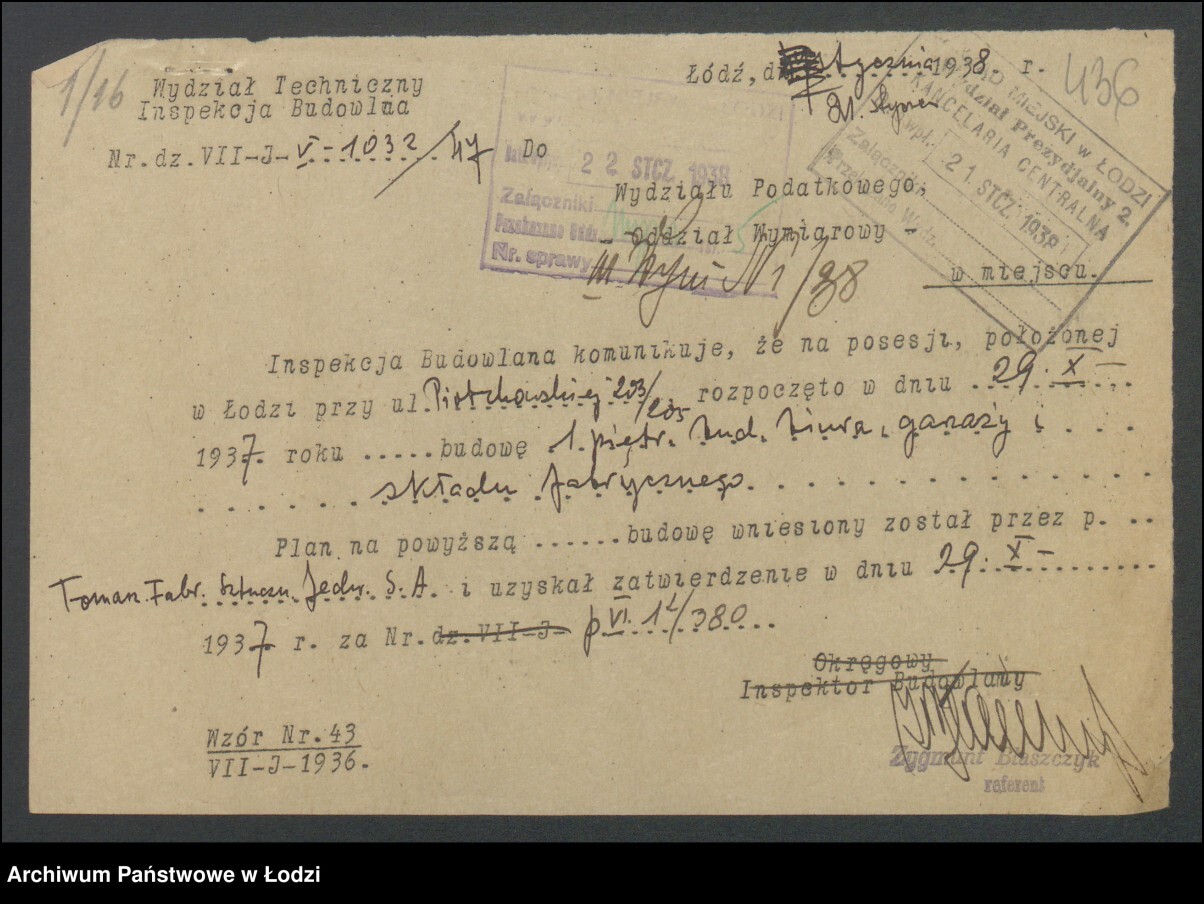 1/16
436
Wydział Techniczny
Inspekcja Budowlna
Łódź, d stycznia 1938. r.
Nr.dz.VII-J-V-1032/47
URZĄD MIEJSKI w ŁODZI
Wydział Prezydjalny 2.
KANCELARIA CENTRALNA
wpł. 21 STCZ 1938
Załączniki
Przekazano Wydz.
22 STCZ 1938
Załączniki
Przekazano Oddz.
Nr. sprawy
Do
Wydziału Podatkowego,
- Oddział Wymiarowy -
w miejscu.
1/38
Inspekcja Budowlana komunikuje, że na posesji, położonej
w Łodzi przy ul. Piotrkowskiej 203/205 rozpoczęto w dniu 29.X-
1937. roku .....budowę 1.piętr. bud. biura, garaży i ...
składu fabrycznego
Plan na powyższą ......budowę wniesiony został przez p. ..
Tomasz. Fabr. Sztuczn. Jedw. S.A. i uzyskał zatwierdzenie w dniu 29.X-
1937 r. za Nr. dz.VII-J- p VI. 1ł/380
Okręgowy
Inspektor Budowlany
Zygmunt Błaszczyk
referent
Wzór Nr.43
VII-J-1936.
Archiwum Państwowe w Łodzi